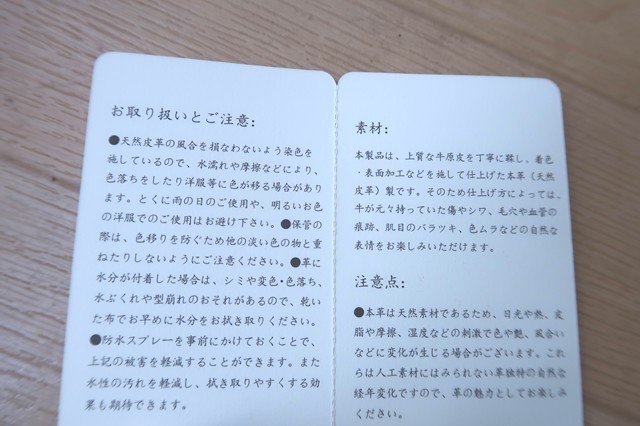 お取り扱いとご注意:
●天然皮革の風合を損なわないよう染色を
施しているので、水濡れや摩擦などにより、
色落ちをしたり洋服等に色が移る場合があり
ます。とくに雨の日のご使用や、明るいお色
の洋服でのご使用はお避け下さい。●保管の
際は、色移りを防ぐため他の淡い色の物と重
ねたりしないようにご注意ください。●革に
水分が付着した場合は、シミや変色・色落ち、
水ぶくれや型崩れのおそれがあるので、乾い
た布でお早めに水分をお拭き取りください。
●防水スプレーを事前にかけておくことで、
上記の被害を軽減することができます。また
水性の汚れを軽減し、拭き取りやすくする効
果も期待できます。
素材:
本製品は、上質な牛原皮を丁寧に鞣し、着色
・表面加工などを施して仕上げた本革(天然
皮革)製です。そのため仕上げ方によっては、
牛が元々持っていた傷やシワ、毛穴や血管の
痕跡、肌目のバラツキ、色ムラなどの自然な
表情をお楽しみいただけます。
注意点:
●本革は天然素材であるため、日光や熱、皮
脂や摩擦、湿度などの刺激で色や艶、風合い
などに変化が生じる場合がございます。これ
らは人工素材にはみられない革独特の自然な
経年変化ですので、革の魅力としてお楽しみ
ください。